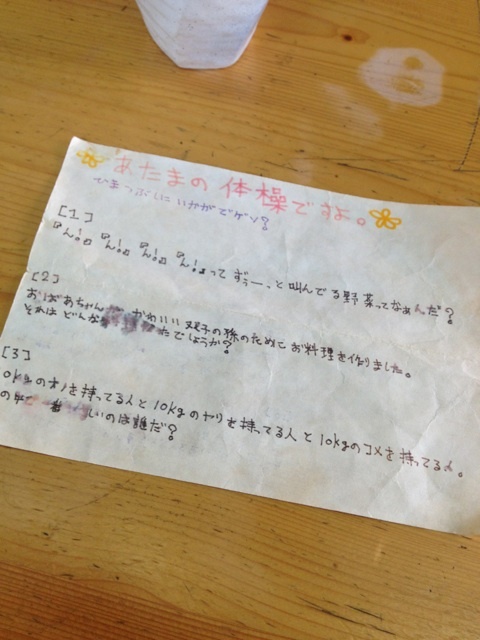 あたまの体操ですよ。
ひまつぶしにいかがでゲソ?
[1]
「ん!」「ん!」「ん!」「ん!」ってずぅーっと叫んでる野菜ってなぁんだ?
[2]
おばあちゃん かわいい双子の孫のためにお料理を作りました。
それはどんな たでしょうか?
[3]
0kgのオノを持ってる人と10kgのヤリを持ってる人と10kgのコメを持ってる人。
の中 しいのは誰だ?